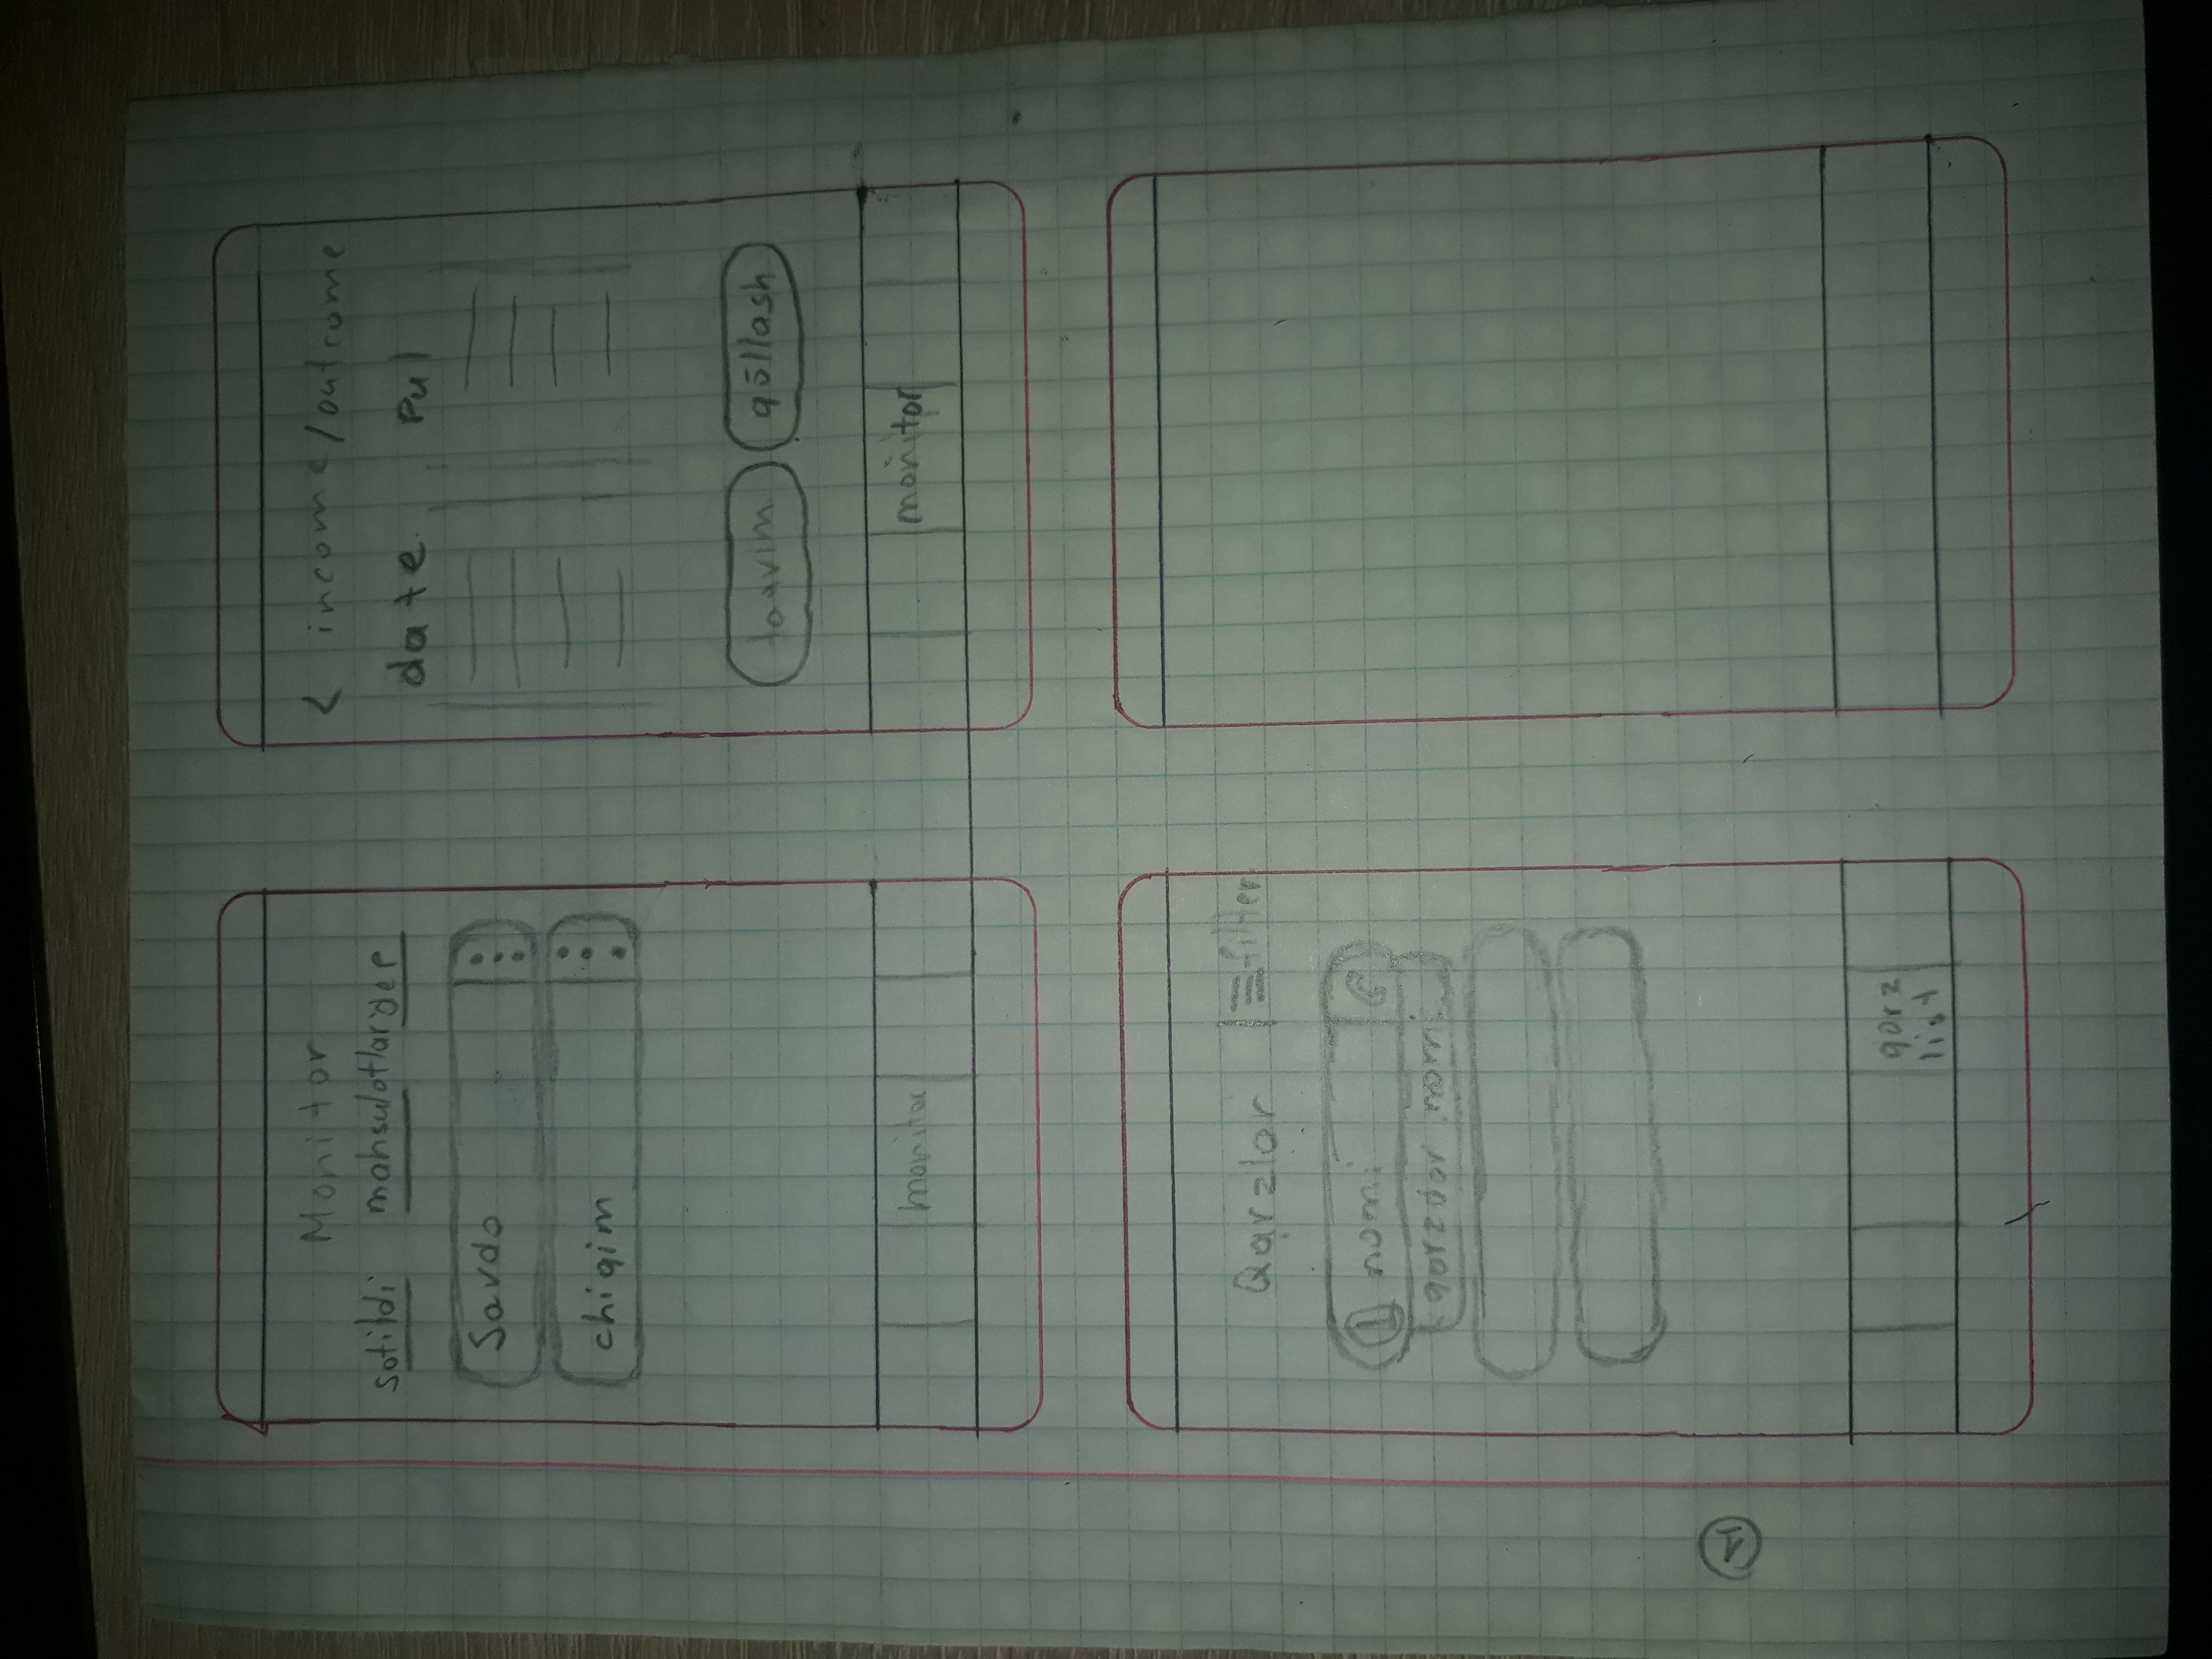 Monitor
sotildi mahsulotlar
Savdo
chiqim
monitor
< income/outcome
date Pul
taqvim qõllash
monitor
Qarzlar filter
1 nomi
qarzdor nomi
qarz
list
1